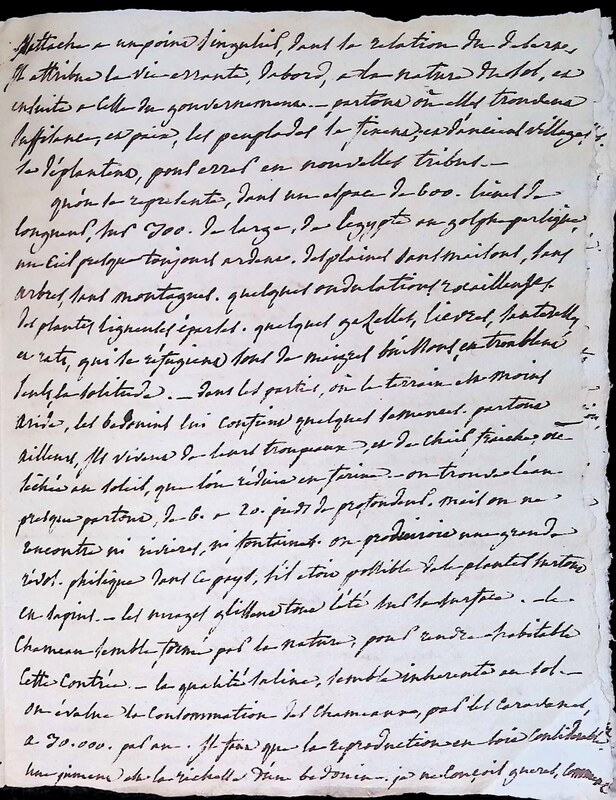 s'attache a un point singulier, dans la relation du desert,
Il attribue la vie errante, d'abord, a la nature du sol, et
ensuite a celle du gouvernement. — partout où elles trouvent
suffisance, et paix, les peuplades se fixent, et d'anciens villages
se déplantent, pour errer en nouvelles tribus. —
qu'on se represente, dans un espace de 600. lieues de
longueur, sur 300. de large, de l'egypte au golphe persique,
un ciel presque toujours ardent. des plaines sans maisons, sans
arbres, sans montagnes. quelques ondulations rocailleuses.
des plantes ligneuses éparses. quelques gazelles, lievres, sauterelles,
et rats, qui se réfugient sous de maigres buissons, en troublent
seuls la solitude. — dans les parties, où le terrain est moins
aride, les bedouins lui confient quelques semences. partout
ailleurs, ils vivent de leurs troupeaux, et de chair, fraiche, ou
sechée au soleil, que l'on réduit en farine. — on trouve l'eau
presque partout, de 6. a 20. pieds de profondeur. mais on ne
rencontre ni rivieres, ni fontaines. on produirois une grande
révol. phisique dans ce pays, s'il etoit possible de le planter surtout
en sapins. — les mirages glissent tout l'été sur sa surface. — le
chameau semble, formé par la nature, pour rendre habitable
cette contrée. — la qualité saline, semble inherente au sol. —
on évalue la consommation des chameaux, par les caravanes,
a 30.000. par an. Il faut que la reproduction en soit considerable
une jument est la richesse d'un bedouin. je ne conçois gueres, comment